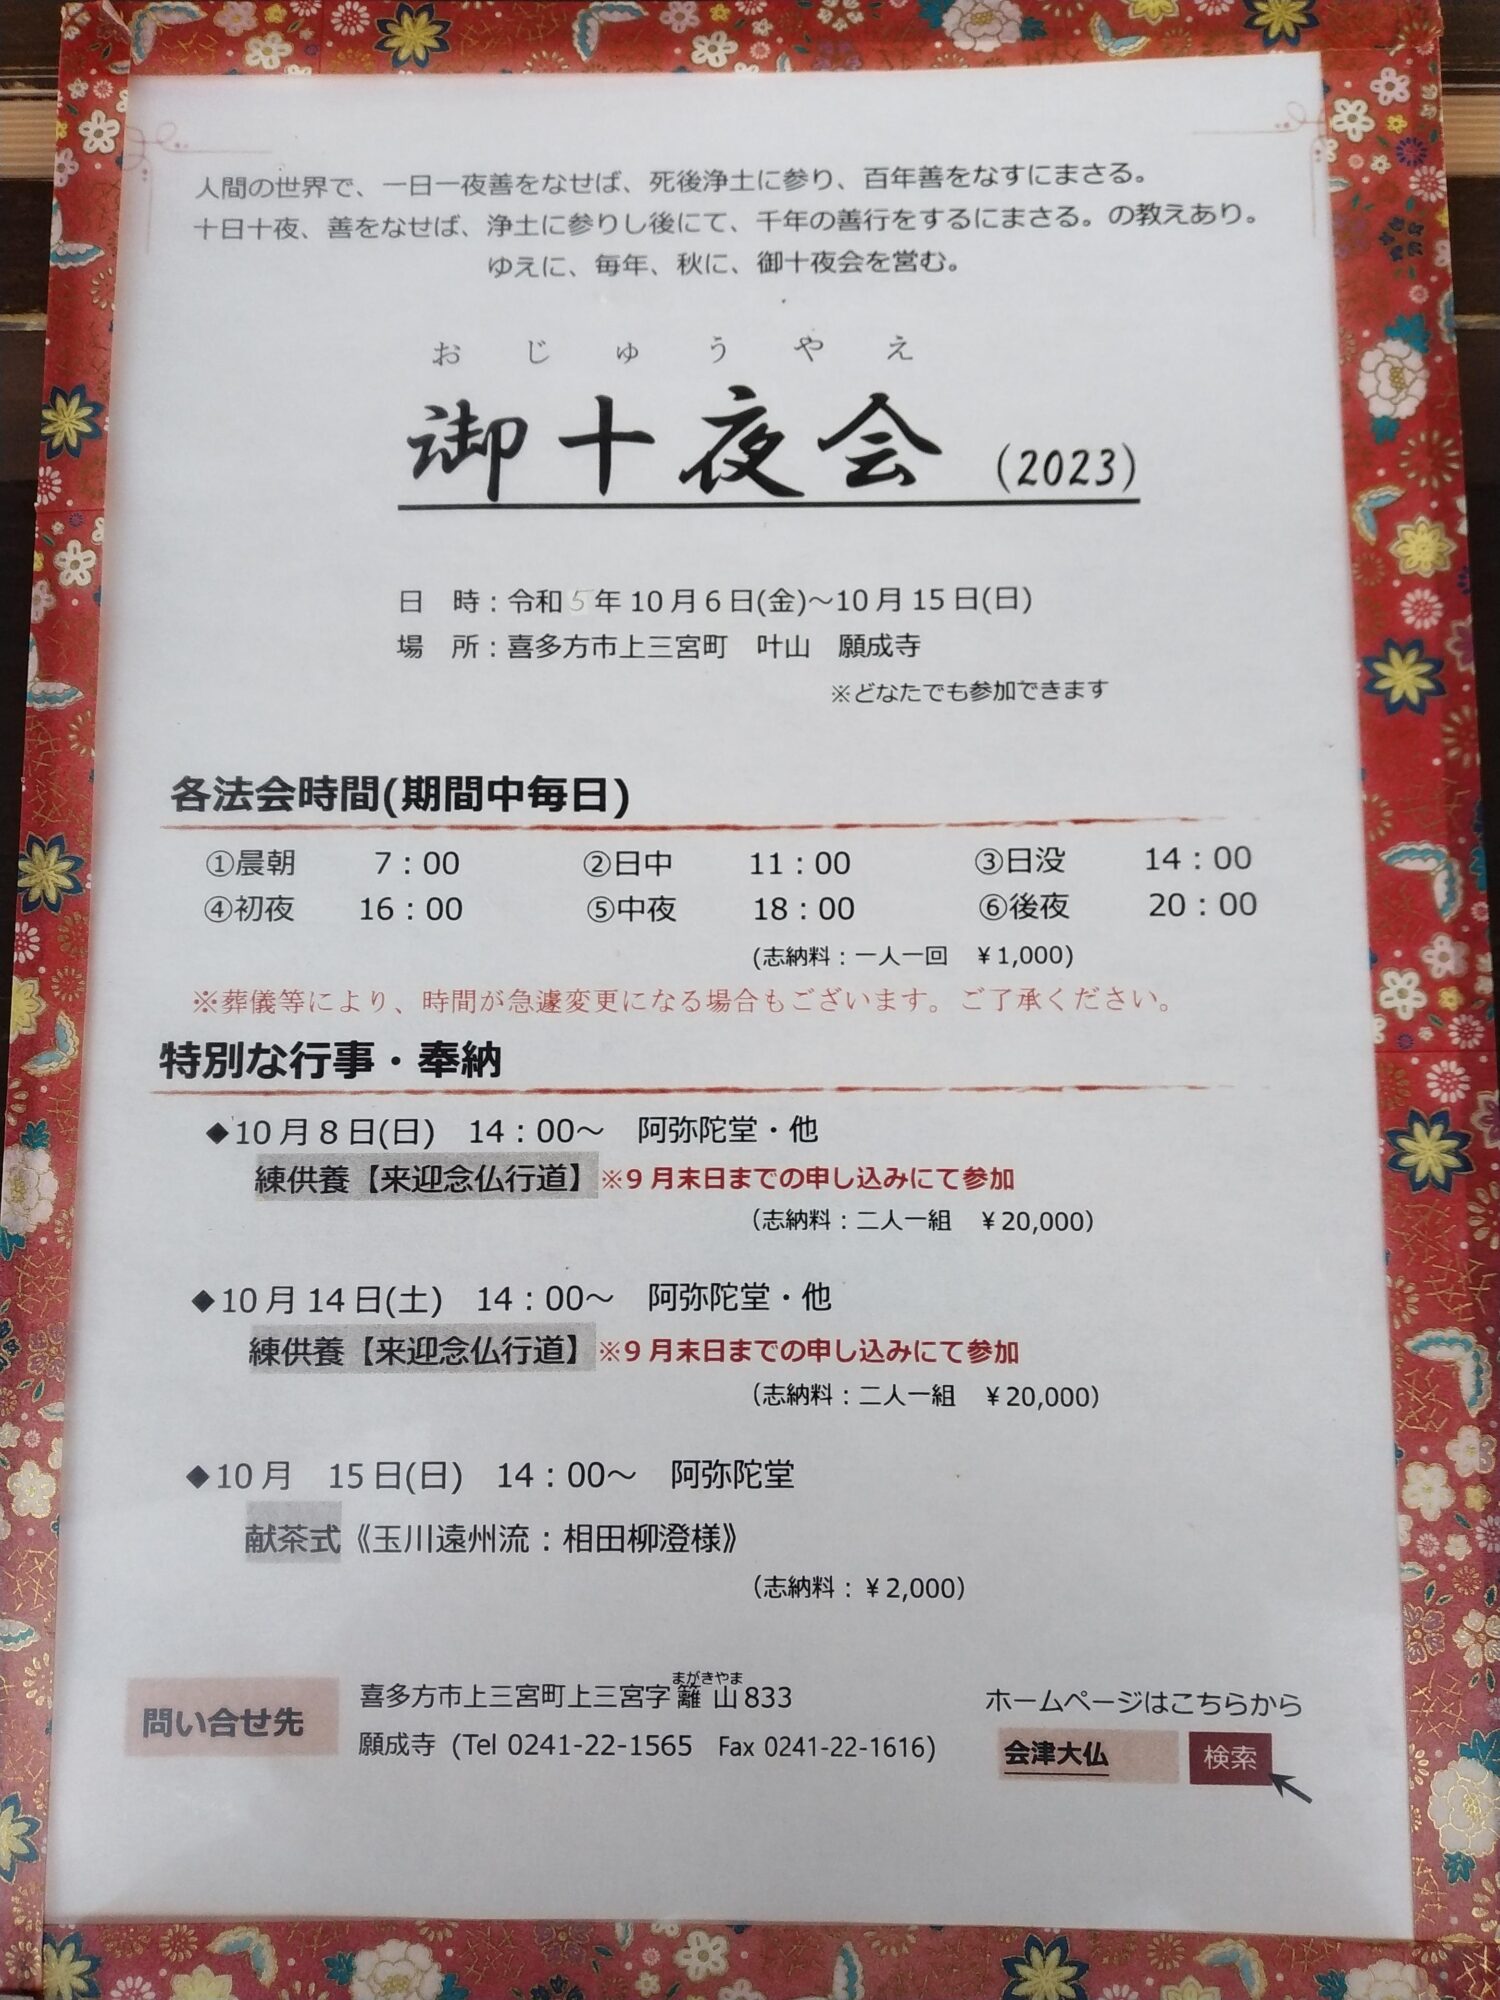 人間の世界で、一日一夜善をなせば、死後浄土に参り、百年善をなすにまさる。
十日十夜、善をなせば、浄土に参りし後にて、千年の善行をするにまさる。の教えあり。
ゆえに、毎年、秋に、御十夜会を営む。
おじゅうやえ
御十夜会 (2023)
日　時：令和5年10月6日(金)～10月15日(日)
場　所：喜多方市上三宮町　叶山　願成寺
※どなたでも参加できます
各法会時間(期間中毎日)
①晨朝　7：00　②日中　11：00　③日没　14：00
④初夜　16：00　⑤中夜　18：00　⑥後夜　20：00
(志納料：一人一回　￥1,000)
※葬儀等により、時間が急遽変更になる場合もございます。ご了承ください。
特別な行事・奉納
◆10月8日(日)　14：00～　阿弥陀堂・他
練供養【来迎念仏行道】※9月末日までの申し込みにて参加
（志納料：二人一組　￥20,000）
◆10月14日(土)　14：00～　阿弥陀堂・他
練供養【来迎念仏行道】※9月末日までの申し込みにて参加
（志納料：二人一組　￥20,000）
◆10月　15日(日)　14：00～　阿弥陀堂
献茶式《玉川遠州流：相田柳澄様》
（志納料：￥2,000）
問い合せ先
まがきやま
喜多方市上三宮町上三宮字籬山833
願成寺 (Tel 0241-22-1565　Fax 0241-22-1616)
ホームページはこちらから
会津大仏　検索